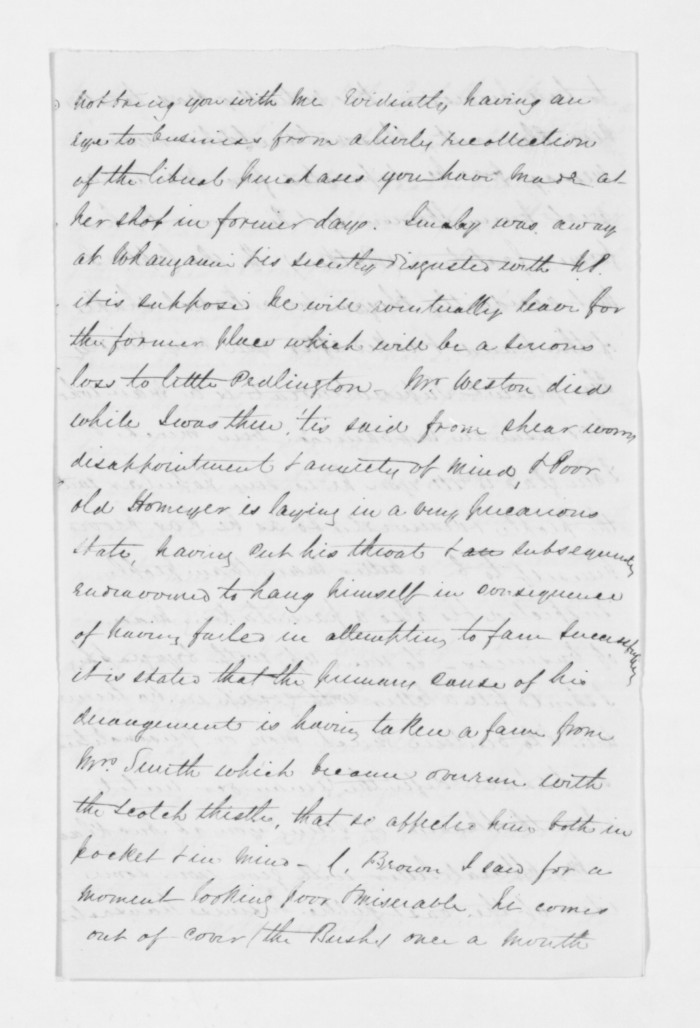 not bring you with me Evidently having an
eye to business from a lively recollection
of the liberal purchases you have made at
her shop in former days. Smaley was away
at Whanganui & is secretly disgusted with N.P.
it is supposed he will eventually leave for
the former place which will be a serious
loss to little Pedlington - Mr Weston died
while I was there, 'tis said from shear worry
disappointment & anxiety of mind, & Poor
old Homeyer is laying in a very precarious
state, having cut his throat & subsequently
endeavoured to hang himself in consequence
of having failed in attempting to farm successfully
it is stated that the primary cause of his
derangement is having taken a farm from
Mrs Smith which became overrun with
the scotch thistle, that so affected him both in
pocket & in mind - C. Brown I saw for a
moment looking poor & miserable he comes
out of cover (the Bush) once a month